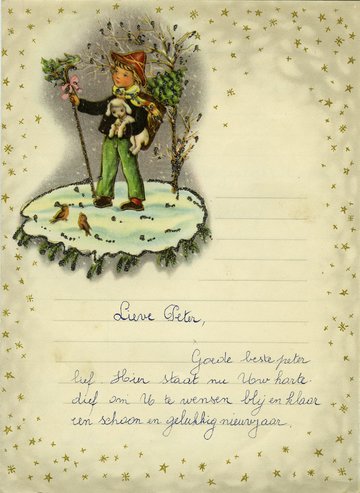 Lieve Peter,
Goede beste peter
lief Hier staat nu Uw harte
dief om U te wensen blij en klaar
een schoon en gelukkig nieuwjaar.